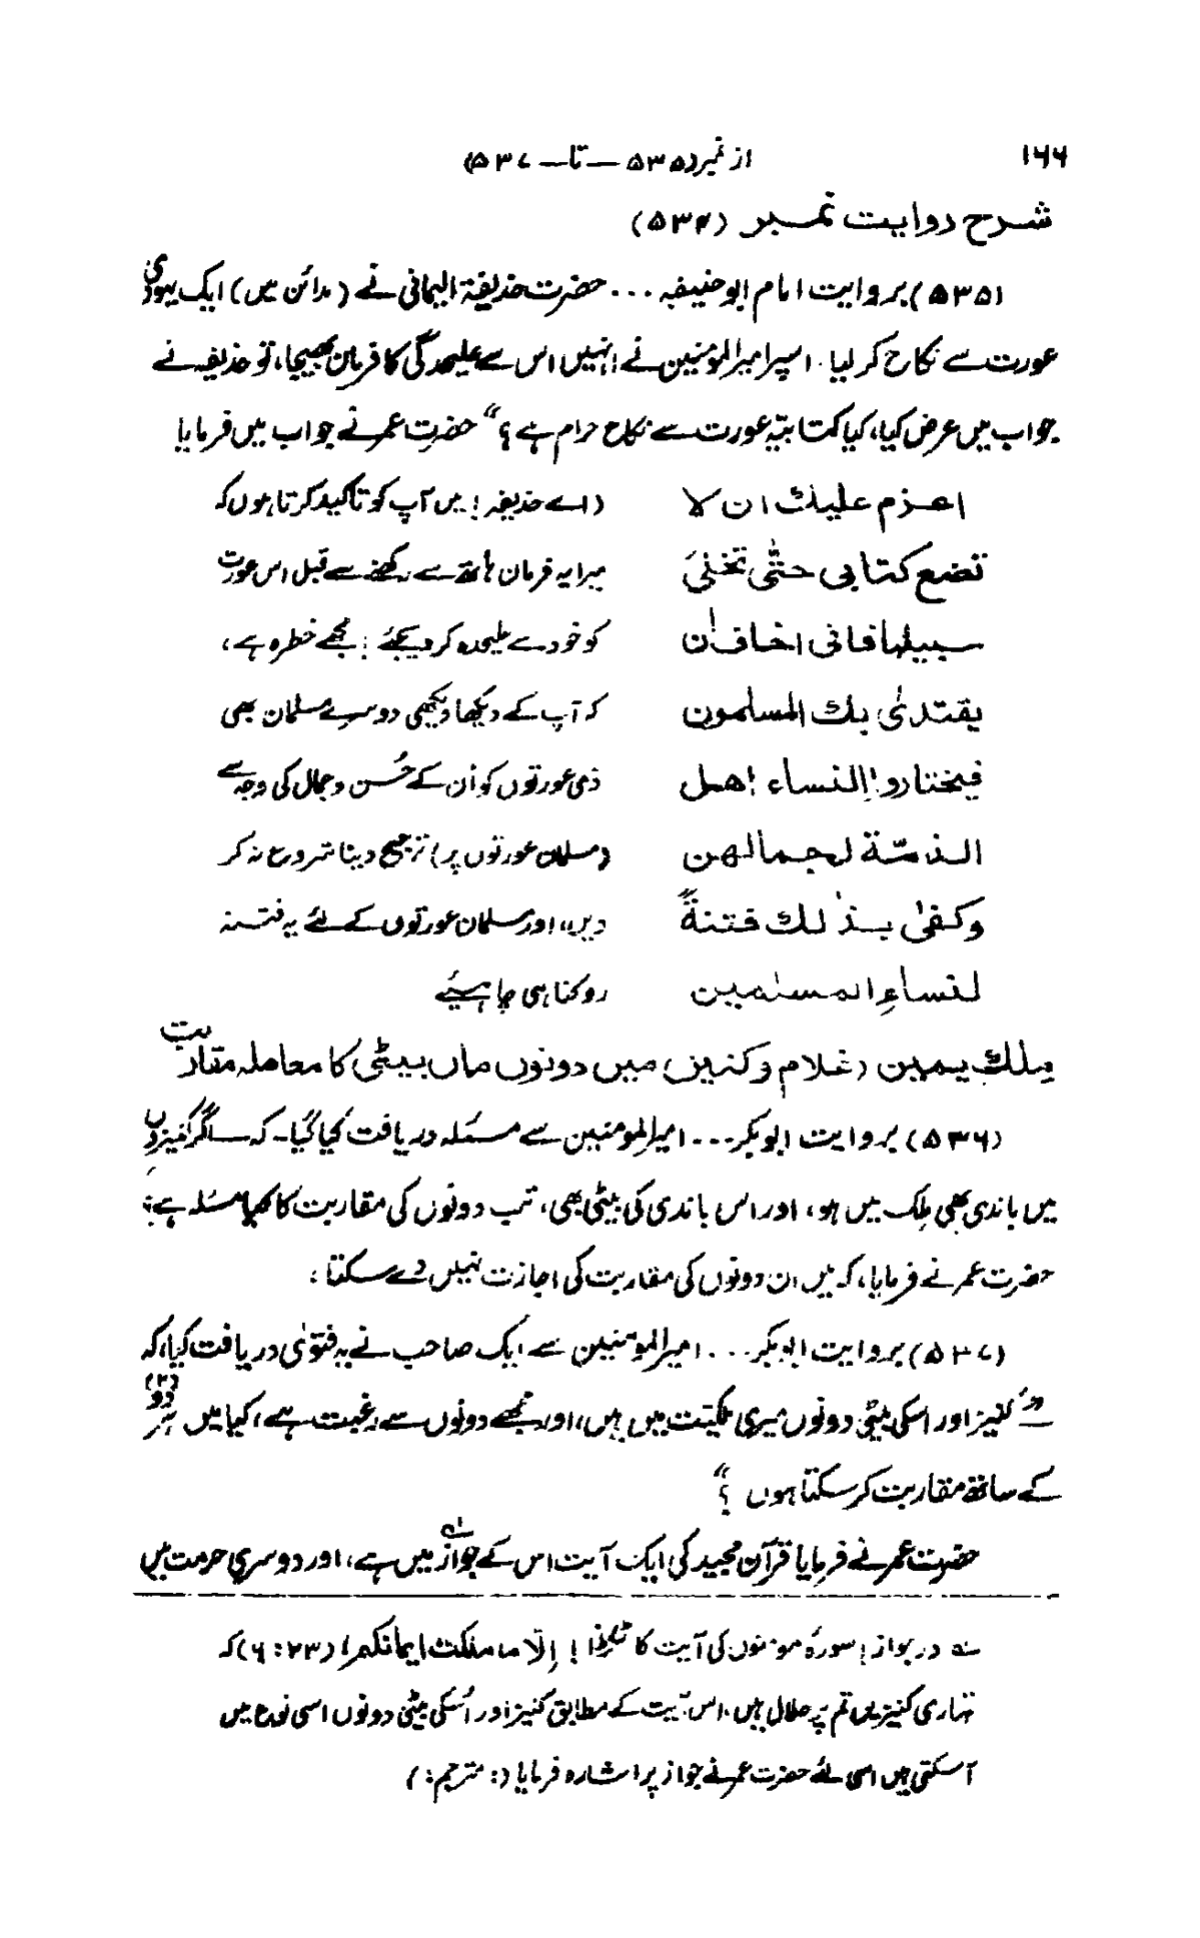 ۱۶۶ از نمبر(۵۳۵ — تا — ۵۳۷)
شرح روایت نمبر (۵۳۴)
(۵۳۵) بروایت امام ابو حنیفہ ... حضرت حذیفۃ الیمانی نے (مدائن میں) ایک یہودی
عورت سے نکاح کر لیا۔ اسپر امیر المؤمنین نے انہیں اس سے علیحدگی کا فرمان بھیجا، تو حذیفہ نے
جواب میں عرض کیا، کیا کتابیّہ عورت سے نکاح حرام ہے؟“ حضرت عمر نے جواب میں فرمایا
اعزم علیک ان لا (اے حذیفہ! میں آپ کو تاکید کرتا ہوں کہ
تضع کتابی حتّٰی تخلیَ میرا یہ فرمان ہاتھ سے رکھنے سے قبل اس عورت
سبیلہا فانی اخاف ان کو خود سے علیحدہ کر دیجئے! مجھے خطرہ ہے،
یقتدیٰ بک المسلمون کہ آپ کے دیکھا دیکھی دوسرے مسلمان بھی
فیختاروا النساء اھل ذمی عورتوں کو اُن کے حُسن و جمال کی وجہ سے
الذمّۃ لجمالہن (مسلمان عورتوں پر) ترجیح دینا شروع نہ کر
وکفیٰ بذٰلک فتنۃً دیں، اور مسلمان عورتوں کے لئے یہ فتنہ
لنساءِ المسلمین روکنا ہی چاہیئے
ملک یمین (غلام و کنیز) میں دونوں ماں بیٹی کا معاملہ مقاربت
(۵۳۶) بروایت ابوبکر... امیر المومنین سے مسئلہ دریافت کیا گیا۔ کہ — اگر کنیزوں
میں باندی بھی مِلک میں ہو، اور اس باندی کی بیٹی بھی، تب دونوں کی مقاربت کا کیا مسئلہ ہے؟
حضرت عمر نے فرمایا، کہ میں ان دونوں کی مقاربت کی اجازت نہیں دے سکتا:
(۵۳۷) بروایت ابوبکر... امیر المومنین سے ایک صاحب نے یہ فتوٰی دریافت کیا، کہ
”کنیز اور اسکی بیٹی دونوں میری ملکیّت میں ہیں، اور مجھے دونوں سے رغبت ہے، کیا میں ہر دو (۲)
کے ساتھ مقاربت کر سکتا ہوں ؟“
حضرت عمر نے فرمایا قرآن مجید کی ایک آیت اس کے جواز میں ہے، اور دوسری حرمت میں
؎ در جواز! سورۂ مومنون کی آیت کا ٹکڑا! اِلّا ما ملکت ایمانکم! (۲۳ : ۶) کہ
تمہاری کنیزیں تم پر حلال ہیں، اس آیت کے مطابق کنیز اور اُسکی بیٹی دونوں اسی نوع میں
آ سکتی ہیں اسی لئے حضرت عمر نے جواز پر اشارہ فرمایا (: مترجم:)